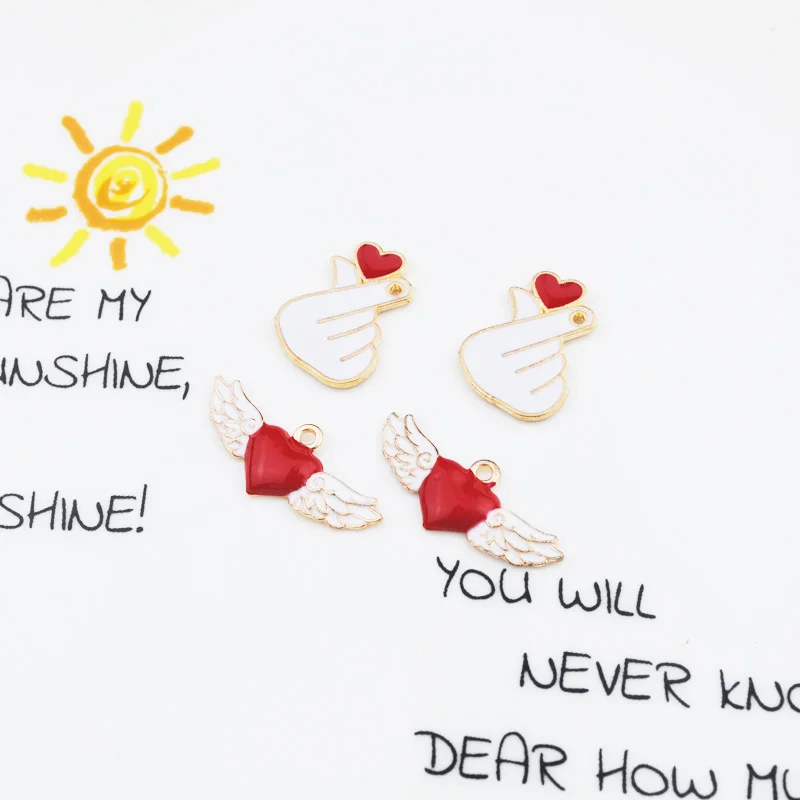 ARE MY
NSHINE,
SHINE!
YOU WILL
NEVER KNO
DEAR HOW MU